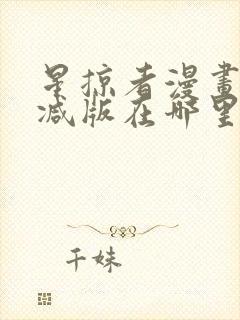 星掠者漫畫
减版在哪里
千妹